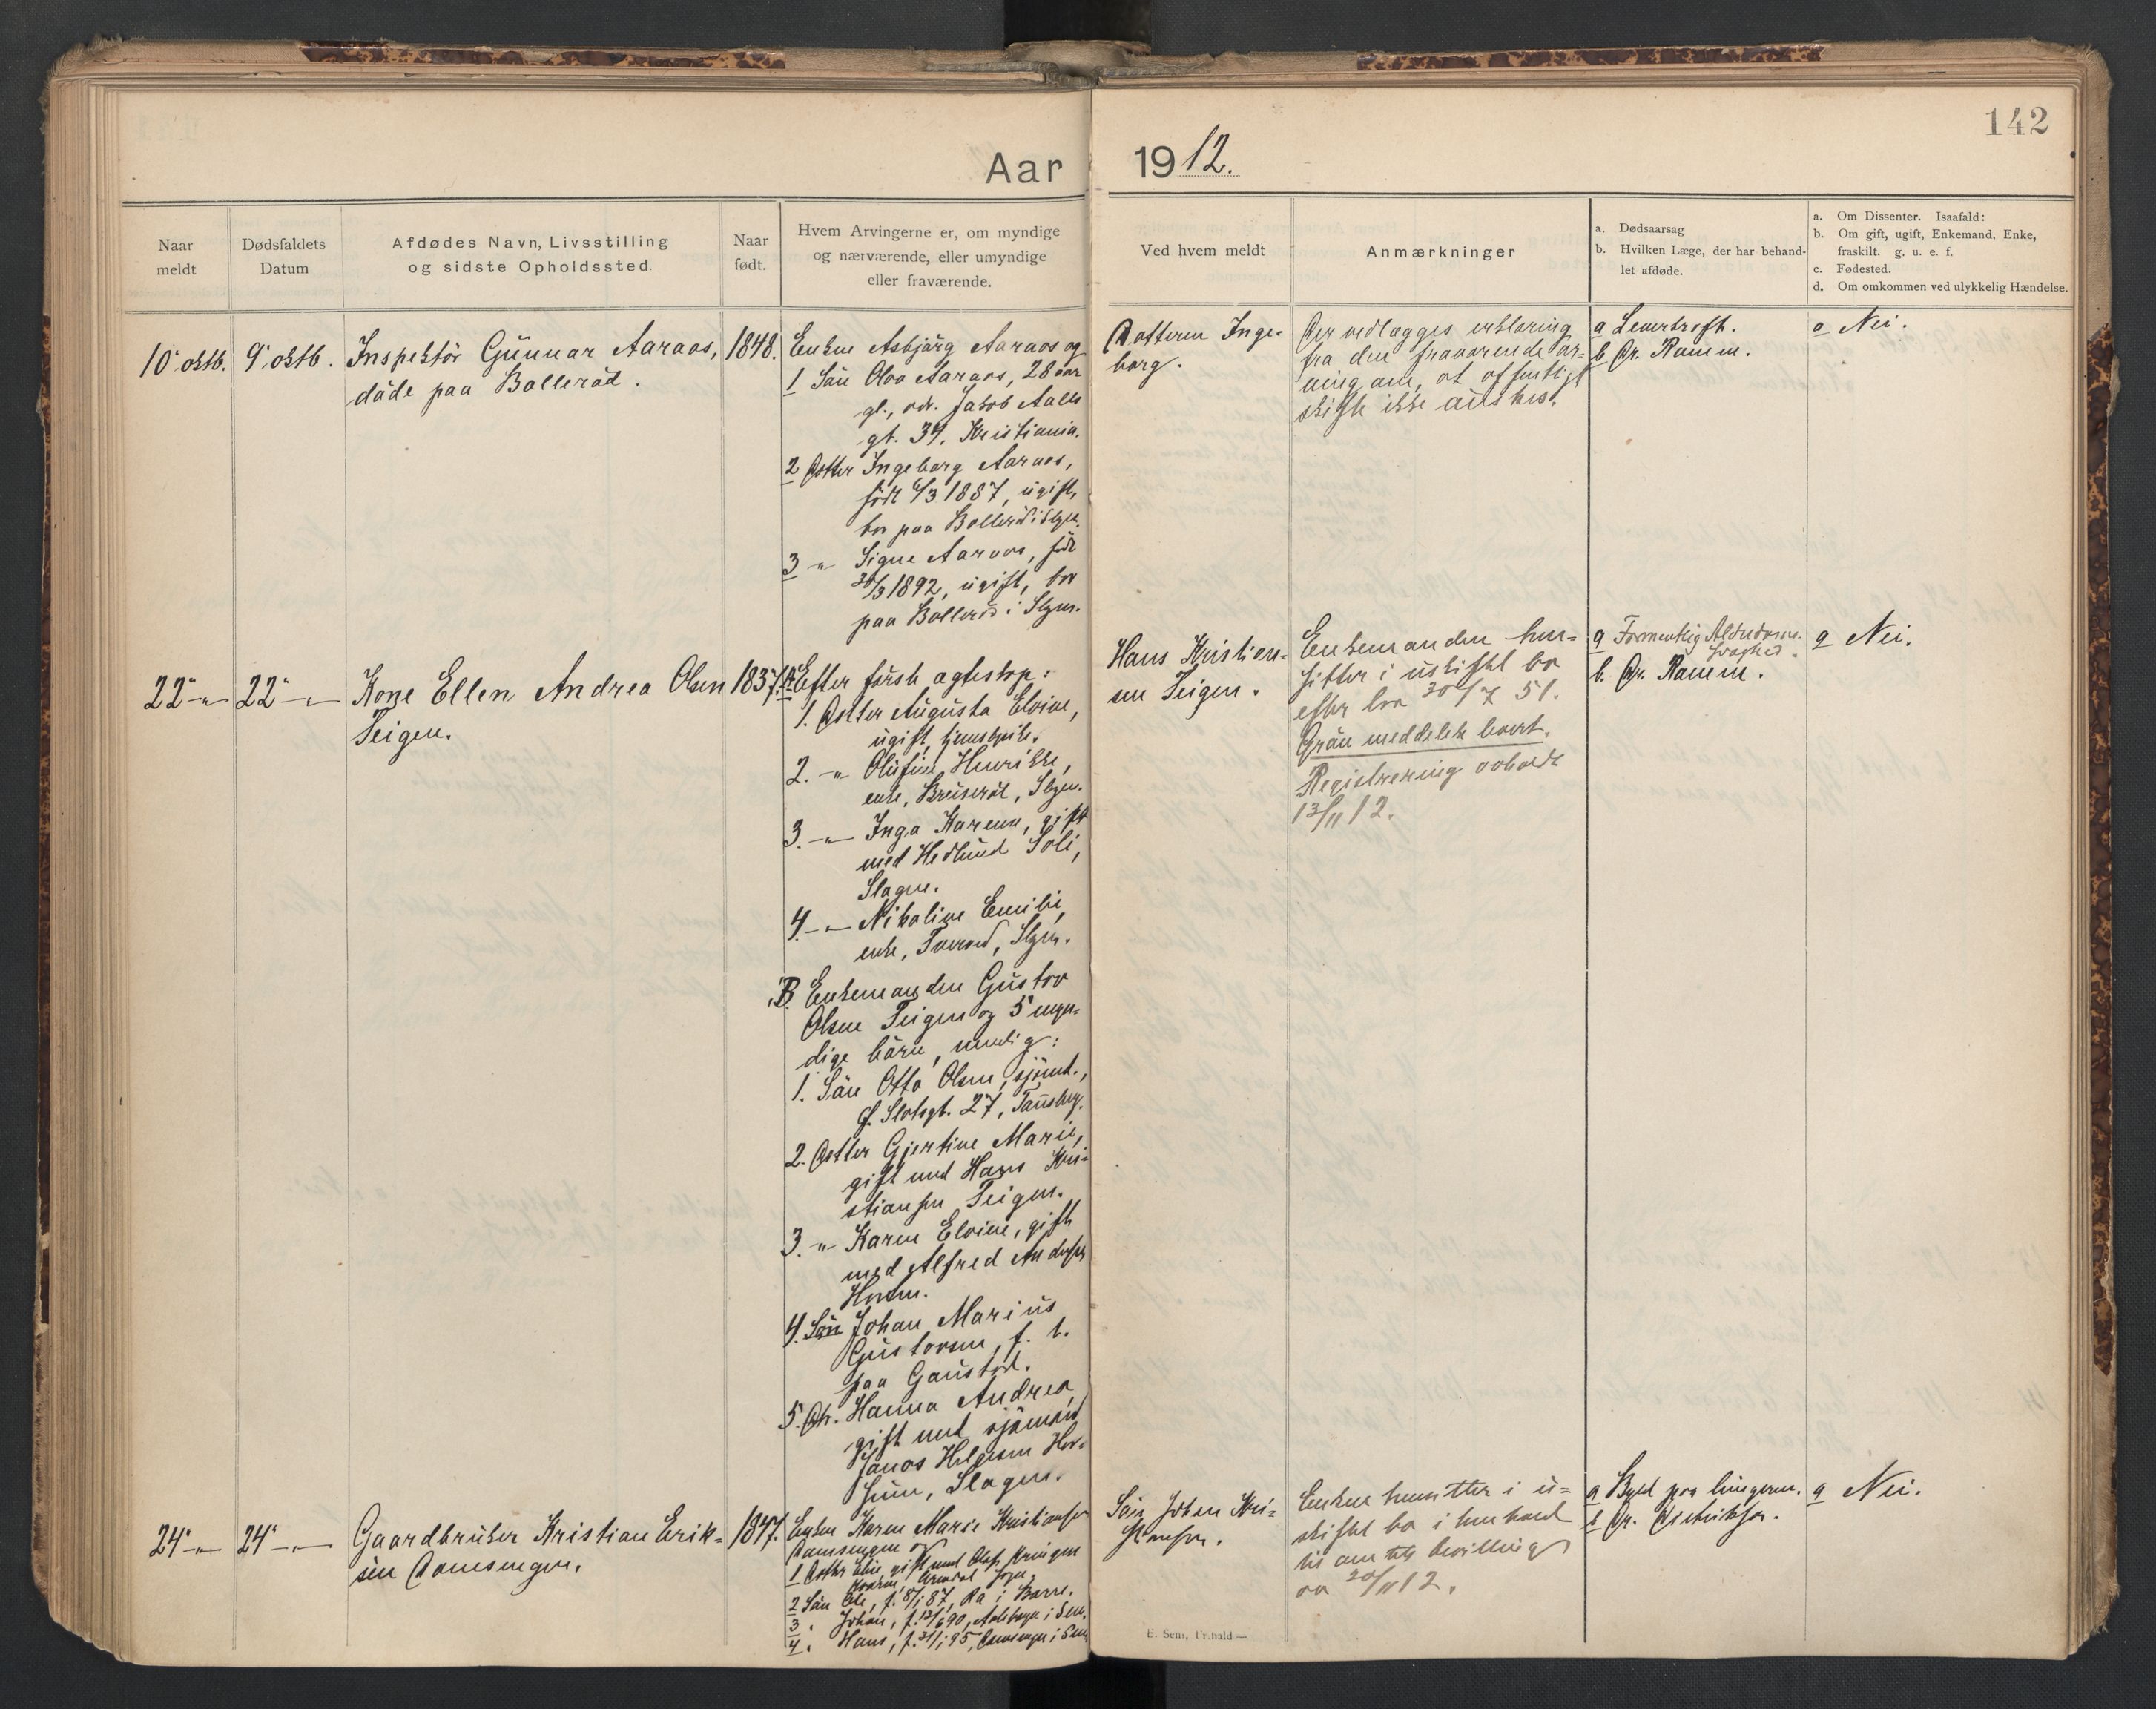 142
Aar 1912.
Naar
meldt
Dødsfaldets
Datum
Afdødes Navn, Livsstilling
og sidste Opholdssted
Naar
født.
Hvem Arvingerne er, om myndige
og nærværende, eller umyndige
eller fraværende.
Ved hvem meldt
Anmærkninger
a. Dødsaarsag
b. Hvilken Læge, der har behand-
let afdøde.
a. Om Dissenter. Isaafald:
b. Om gift, ugift, Enkemand, Enke,
fraskilt. g. u. e. f.
c. Fødested.
d. Om omkommen ved ulykkelig Hændelse.
10' oktb.
9' oktb.
Inspektör Gunnar Aaraas,
döde paa Balleröd.
1848.
Enken Asbjörg Aaraas og
1 Sön Olva Aaraas, 28 aar
gl., adr. Jakob Aalls
gt. 34, Kristiania.
2 Datter Ingeborg Aaraas,
födt 6/3 1887, ugift,
bor paa Balleröd i Slgn.
3 -"- Signe Aaraas, födt
30/3 1892, ugift, bor
paa Balleröd i Slgn.
Datteren Inge-
borg.
Der vedlægges erklæring
fra den fraværende ar-
ving om, at offentligt
skifte ikke önskes.
a Leverkræft.
b Dr. Ramm.
a Nei.
22' -"-
22' -"-
Kone Ellen Andrea Olsen
Teigen.
1837.
A. Efter förste ægteskap:
1. Datter Augusta Elvine,
ugift,
2. -"- Olufine Henrikke,
enke, Slgn.
3. -"- Inga Karene, gift
med Hedlund Soli,
Slagen.
4. -"- Nikoline Emilie,
enke, Slgn.
B. Enkemanden Gustav
Olsen Teigen og 5 myn-
dige börn, nemlig:
1. Sön Otto Olsen, sjömd.,
f. Slotsgt. 27, Tönsberg.
2. Datter Gjertine Marie,
gift med Hans Kri-
stiansen Teigen.
3. -"- Karen Elvine, gift
med Alfred Andersen
4. Sön Johan Marius
Gustavsen, f. t.
paa Gaustad.
5. Dtr. Hanna Andrea,
gift med sjömand
Janos Helgesen
Slagen.
Hans Kristian-
sen Teigen.
Enkemanden hen-
sitter i uskiftet bo
efter lov 30/7 51.
Grön meddelelse levert.
Registrering avholdt
13/11 12.
a Formentlig Alderdoms-
svaghed.
b. Dr. Ramm.
a Nei.
24' -"-
24' -"-
Gaardbruker Kristian Erik-
sen Damsengen.
1847.
Enken Karen Marie Kristiansen
Damsengen og
1 Datter Eline, gift med Olaf
2 Sön Ole, f. 8/1 87, Ra i Borre.
3 " Johan, f. 12/6 90, i Sem.
4 " Hans, f. 21/1 95, Damsengen i Sem
Sön Johan Kri-
stiansen.
Enken hensitter i u-
skiftet bo i henhold
til amtets bevilling
av 20/11 12.
a Byld paa lungerne.
b Dr. Didrikson.
a Nei.
E. Sem, Fr.hald—